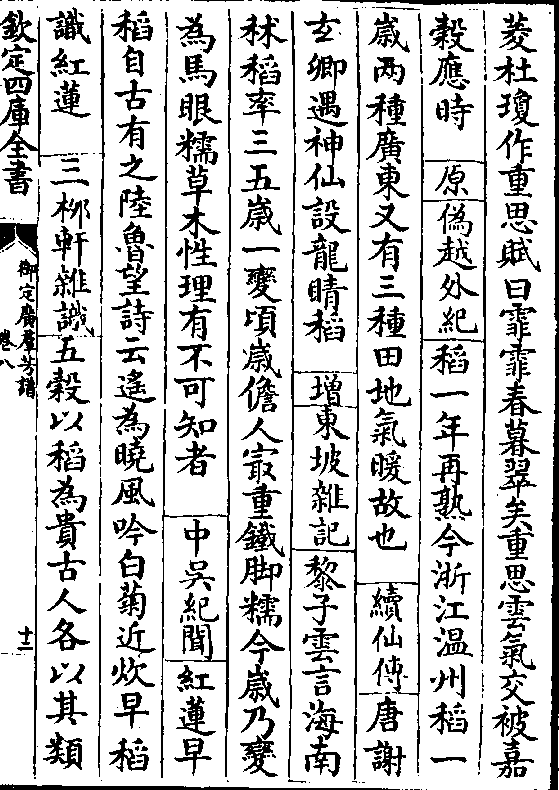 菱杜瓊作重思賦曰霏霏春暮翠矣重思雲氣交被嘉
榖應時　原　偽越外紀　稻一年再熟今浙江温州稻一
嵗两種廣東又有三種田地氣暖故也　續仙傳　唐謝
玄卿遇神仙設龍睛稻　增　東坡雜記　黎子雲言海南
秫稻率三五嵗一變頃嵗儋人㝡重鐵脚糯今嵗乃變
為馬眼糯草木性理有不可知者　中吳紀聞　紅蓮早
稻自古有之陸魯望詩云遙為曉風吟白菊近炊早稻
識紅蓮　三栁軒雜識　五榖以稻為貴古人各以其類
欽定四庫全書
御定廣羣芳譜
卷八
十二